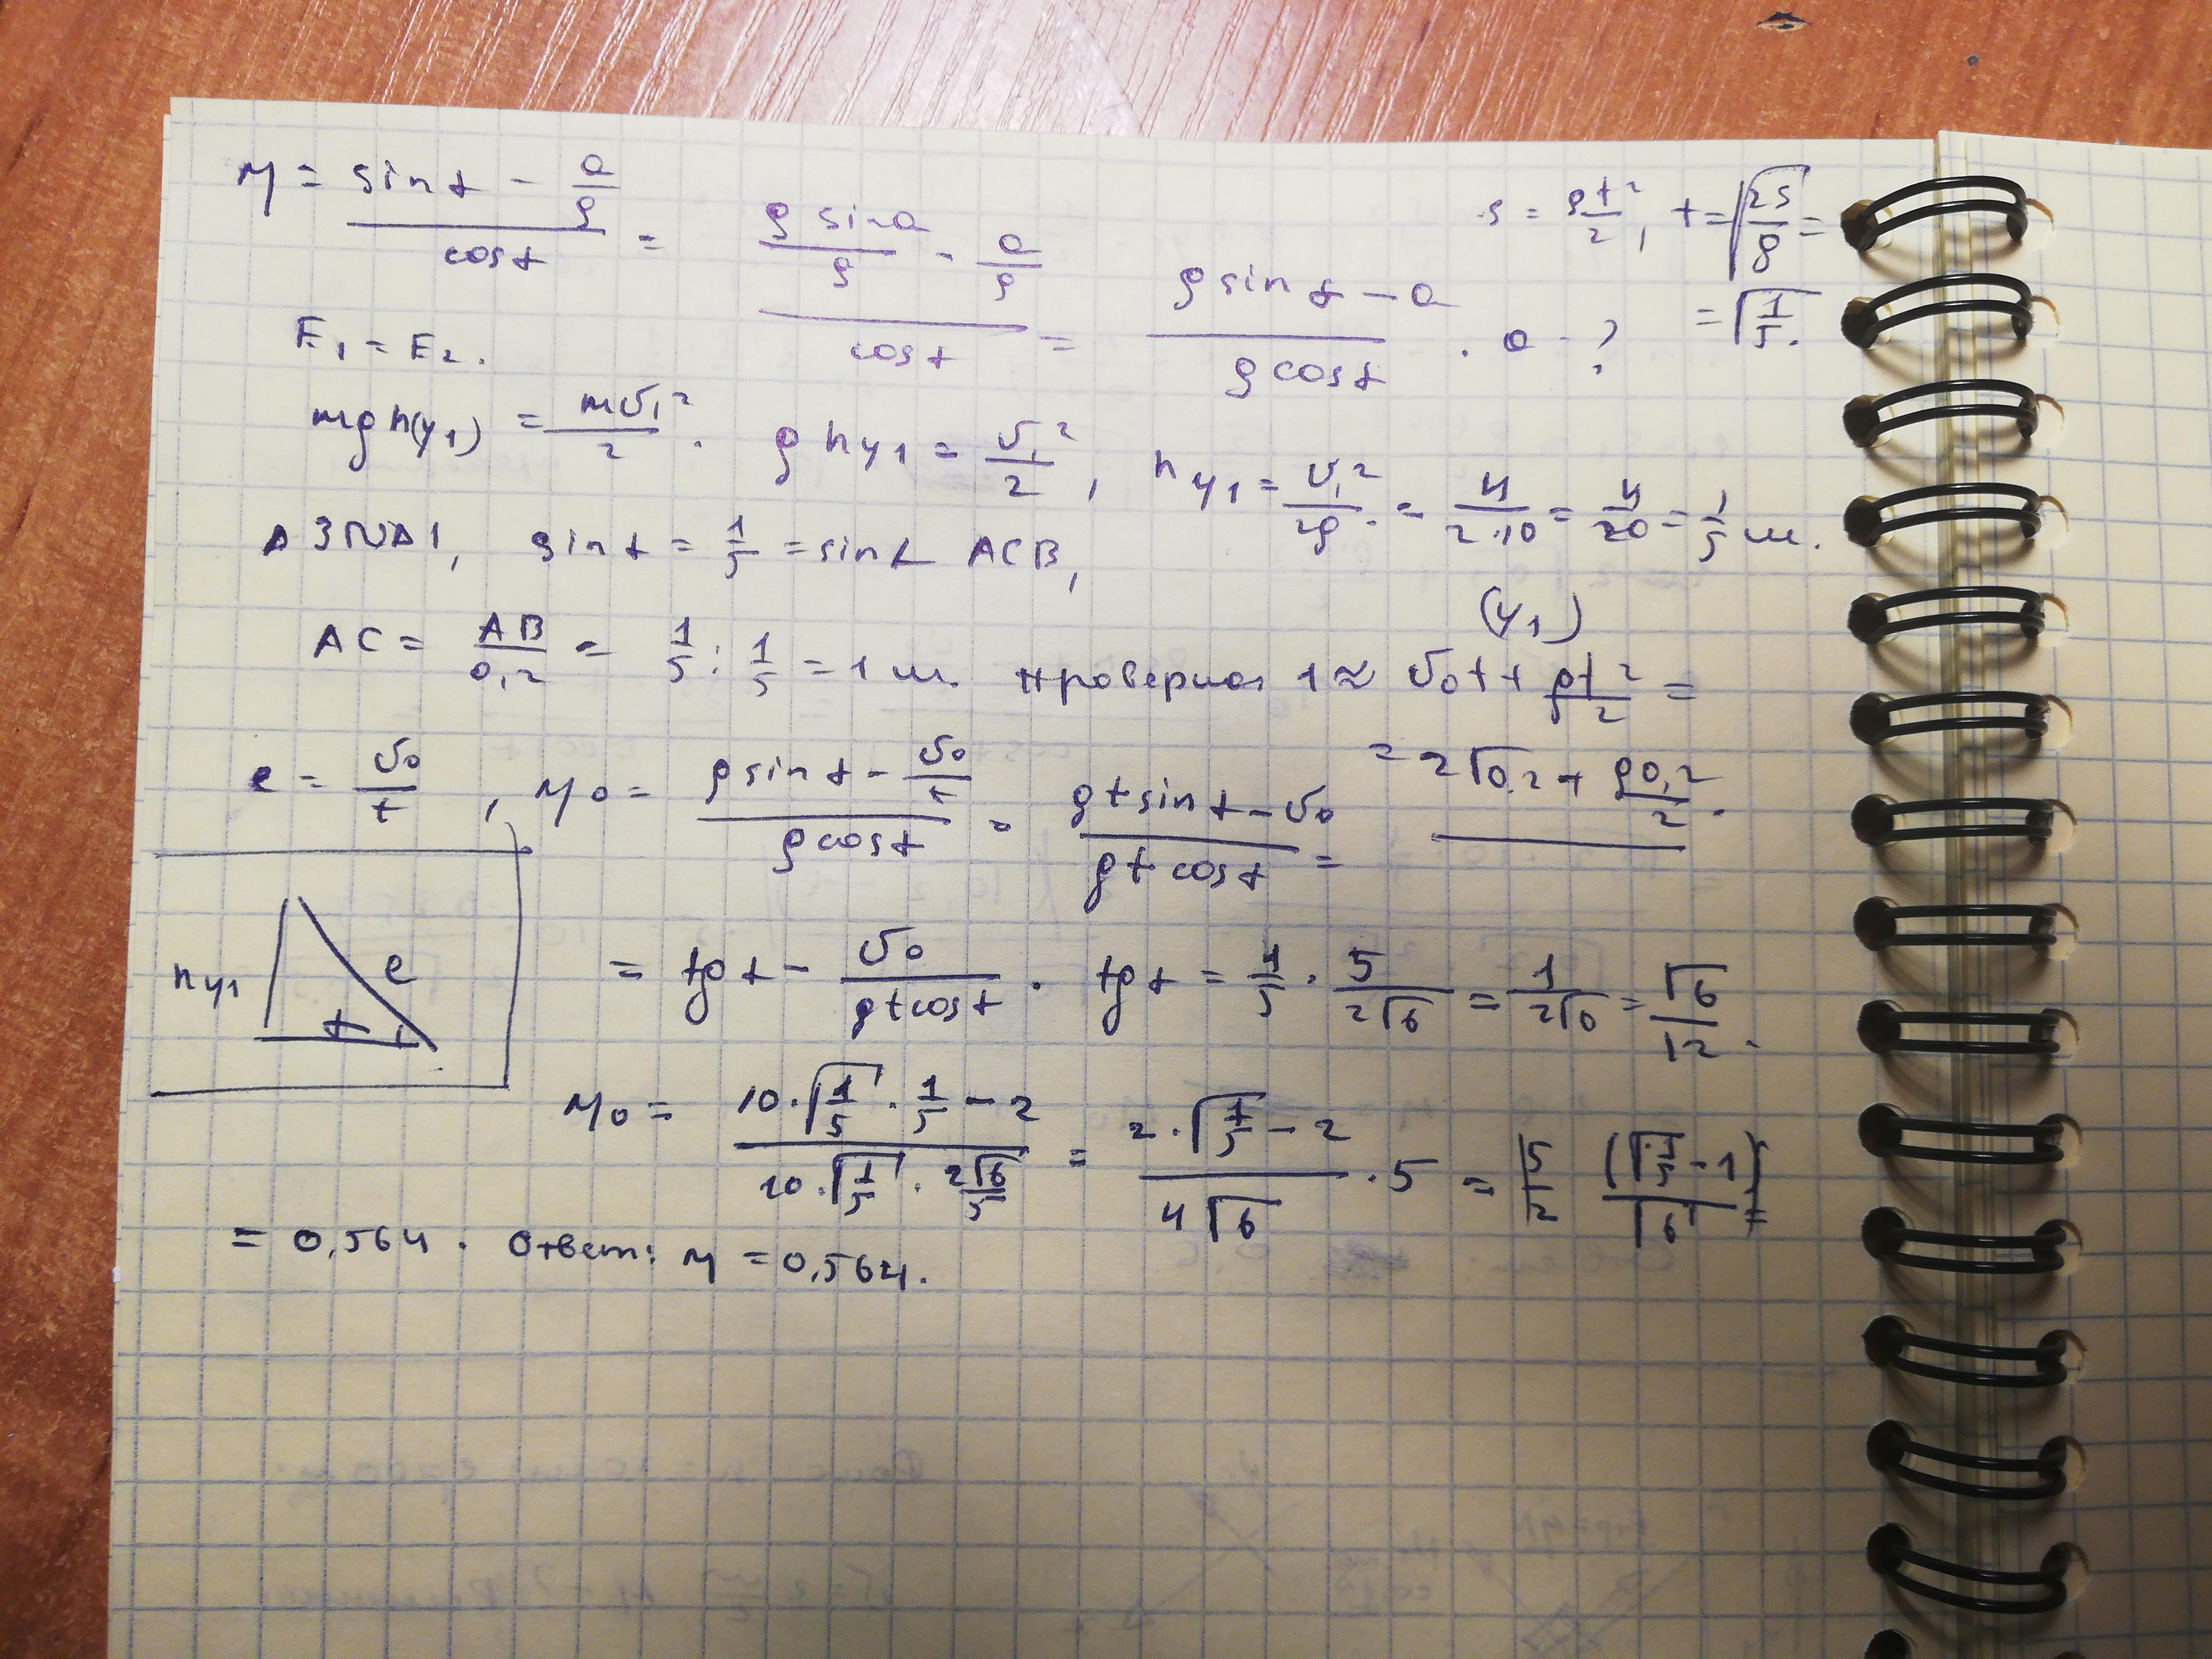 M = (sin t - a/g) / cos t = (g sin a/g - a/g) / cos t = (g sin t - a) / (g cos t) . a - ?
s = gt²/2, t = √(2s/g) = √(1/5).
E₁ = E₂.
mgh(y₁) = mv₁²/2. g hy₁ = v₁²/2, hy₁ = v₁²/2g. = 4/(2·10) = 4/20 = 1/5 м.
sin t = 1/5 = sin ∠ ACB,
AC = AB/0,2 = 1/5 : 1/5 = 1 м. проверил 1 ≈ v₀t + gt²/2 =
(y₁)
= 2√0,2 + g0,2/2.
e = v₀/t, M₀ = (g sin t - v₀/t) / (g cos t) = (gt sin t - v₀) / (gt cos t) =
hy₁ e t
= tg t - v₀/(gt cos t) . tg t = 1/5 · 5/(2√6) = 1/(2√6) = √6/12.
M₀ = (10·√(1/5) · 1/5 - 2) / (10·√(1/5) · 2√6/5) = (2·√(1/5) - 2) / (4√6) · 5 = |5/2 (√(1/5) - 1)/√6| =
= 0,564. Ответ: M = 0,564.